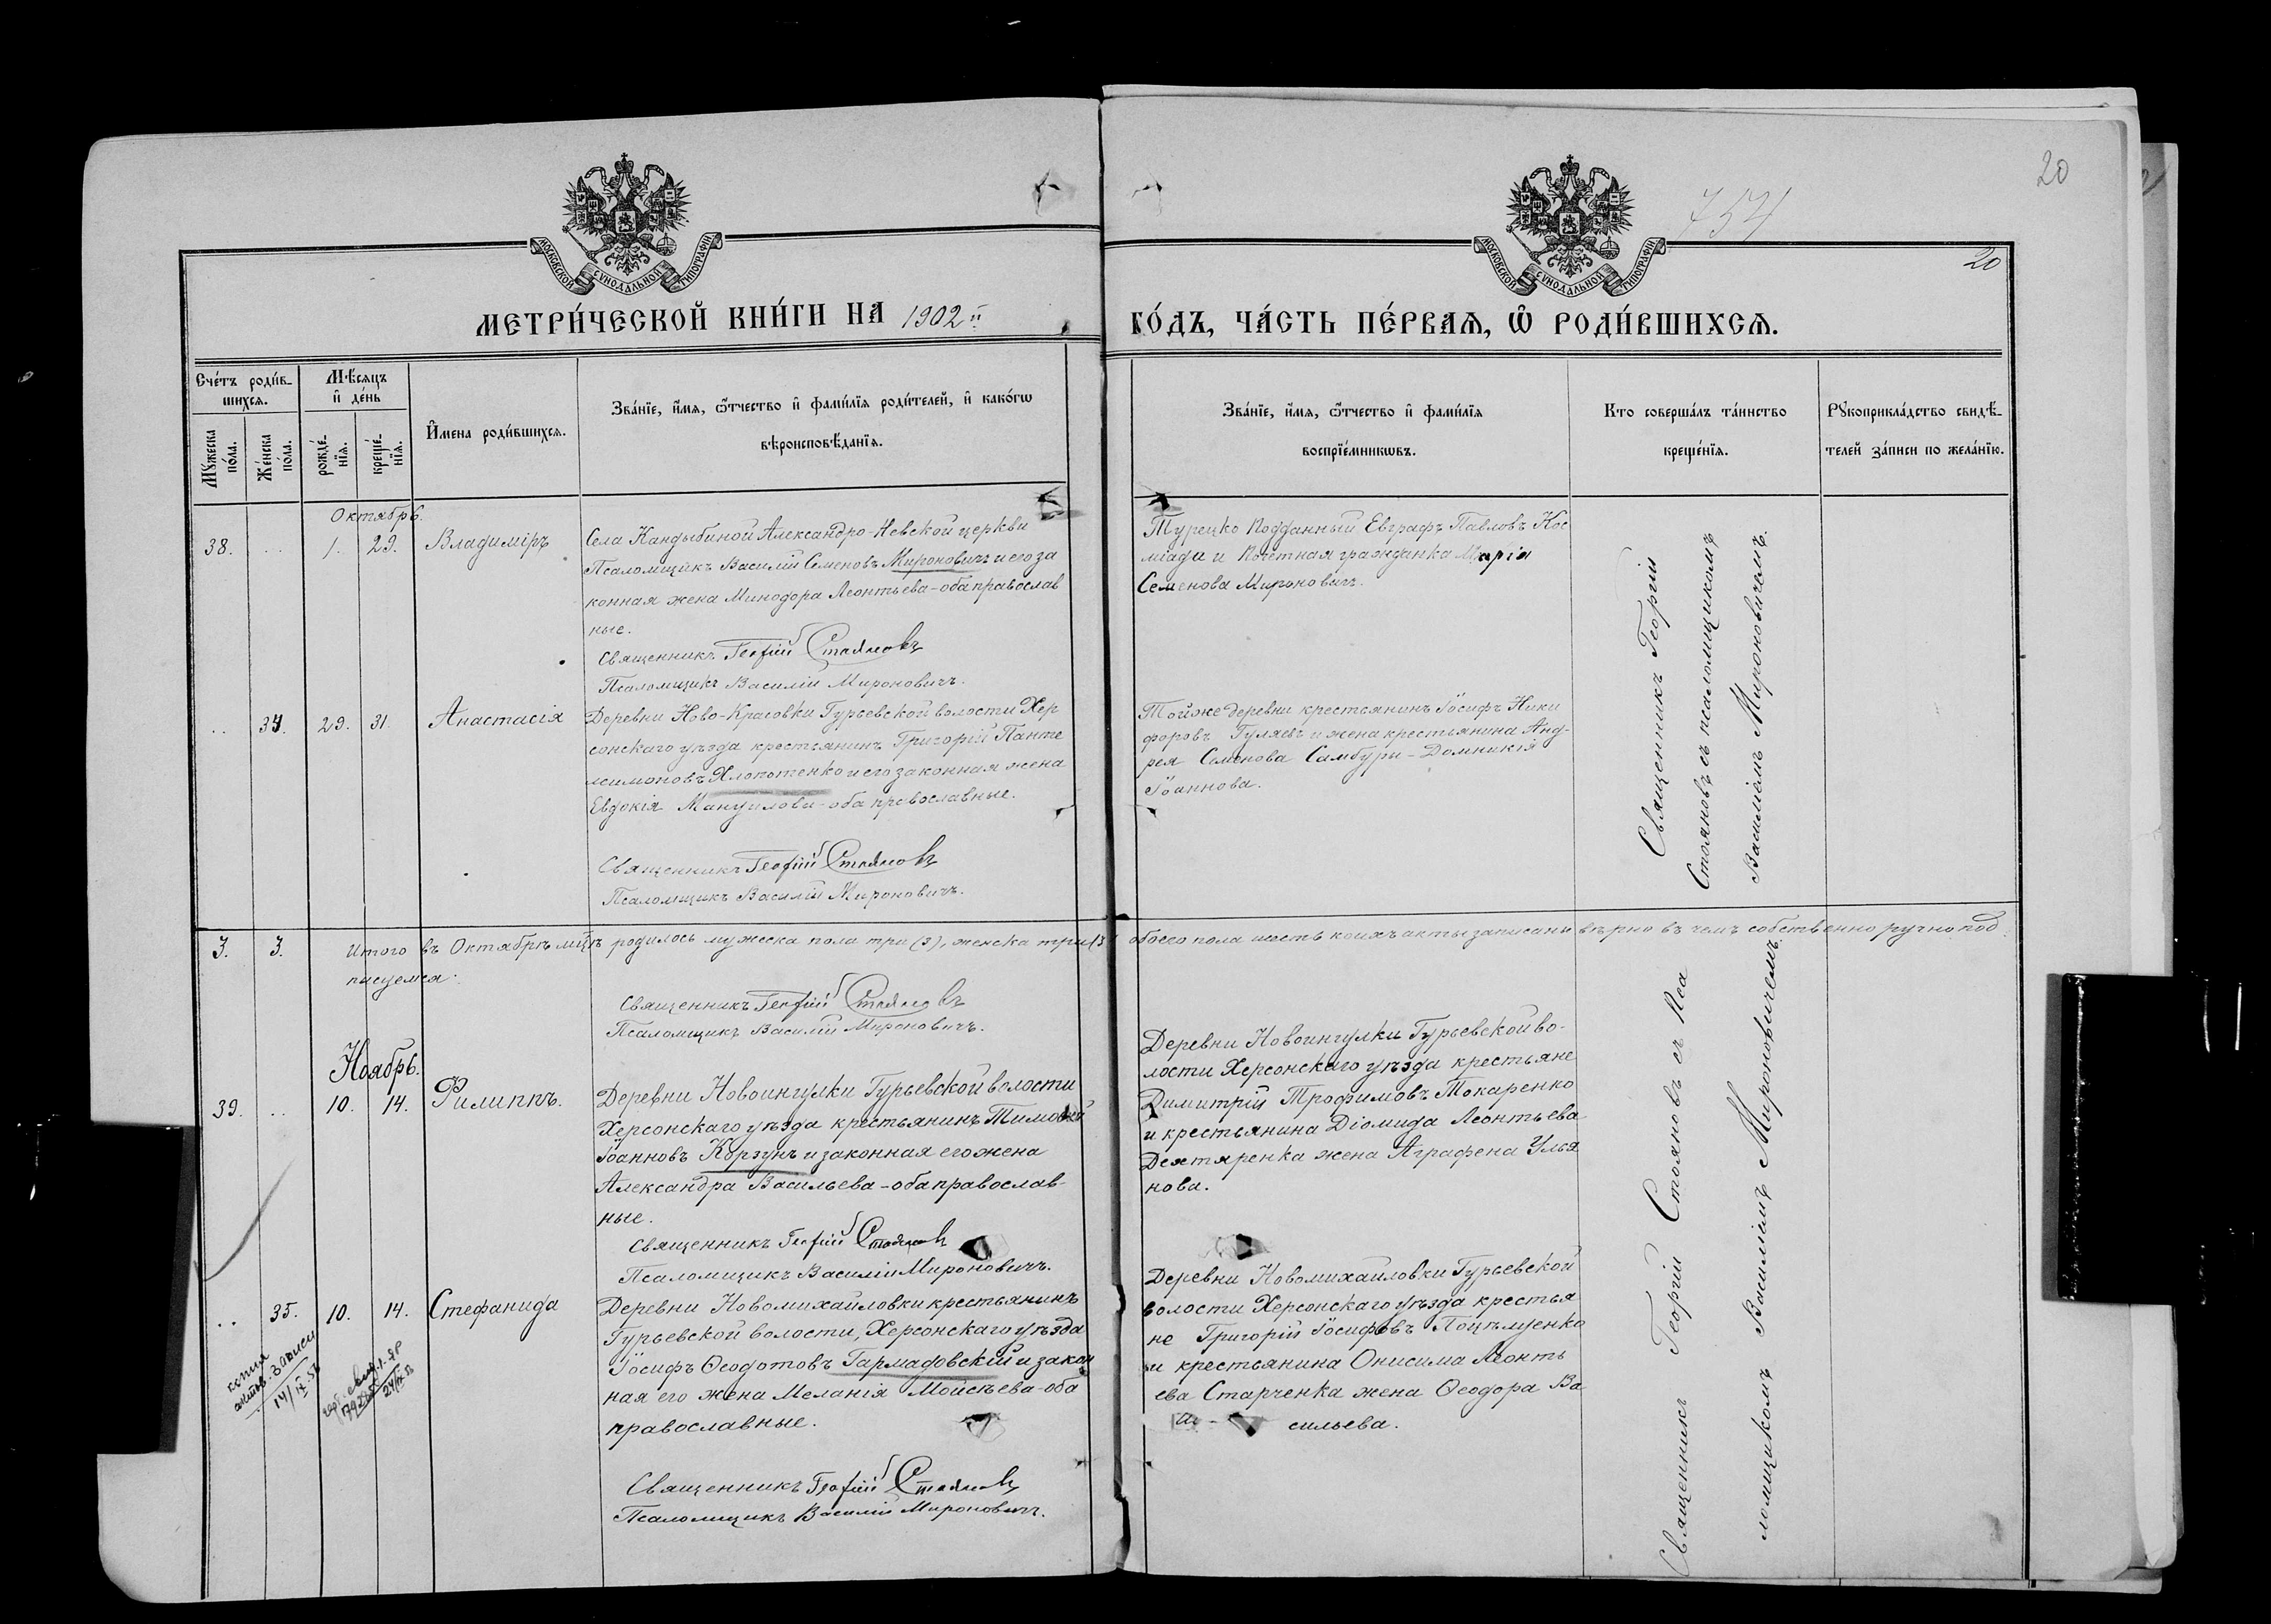 20
754
20
МОСКОВСКОЙ СѴНОДАЛЬНОЙ ТИПОГРАФІИ
МОСКОВСКОЙ СѴНОДАЛЬНОЙ ТИПОГРАФІИ
МЕТРИ́ЧЕСКОЙ КНИ́ГИ НА 1902й
ГО́ДЪ, ЧА́СТЬ ПЕ́РВАЯ, Ѽ РОДИ́ВШИХСЯ.
Сче́тъ роди́в-
шихся.
Мѣ́сяцъ
и҆ де́нь
Мꙋ́жеска
по́ла.
Же́нска
по́ла.
рожде́-
нїя.
креще́-
нїя.
И҆мена роди́вшихся.
Зва́нїе, и҆́мя, ѻ҆́тчество и҆ фами́лїя роди́телей, и҆ како́гѡ
вѣроисповѣ́данїя.
Зва́нїе, и҆́мя, ѻ҆́тчество и҆ фами́лїя
воспрїе́мникѡвъ.
Кто соверша́лъ та́инство
креще́нїя.
Рꙋкоприкла́дство свидѣ́-
телей за́писи по жела́нїю.
Октябрь.
38. .. 1. 29. Владиміръ
Села Кандыбиной Александро-Невской церкви
Псаломщикъ Василій Семеновъ Мироновичъ и его за
конная жена Минодора Леонтьева - оба православ
ные.
Священникъ Георгій Стояновъ
Псаломщикъ Василій Мироновичъ.
Турецко подданный Евграфъ Павловъ Кос
міади и Почетная гражданка Марія
Семенова Мироновичъ.
.. 34. 29. 31. Анастасія
Деревни Ново-Красовки Гурьевской волости Хер
сонскаго уѣзда крестьянинъ Григорій Панте
леимоновъ Хлопотенко и его законная жена
Евдокія Мануилова - оба православные.
Священникъ Георгій Стояновъ
Псаломщикъ Василій Мироновичъ.
Той же деревни крестьянинъ Іосифъ Ники
форовъ Гуляевъ и жена крестьянина Анд-
рея Семенова Самбури - Домникія
Іоаннова.
Священникъ Георгій
Стояновъ съ псаломщикомъ
Василіемъ Мироновичемъ.
3. 3. Итого въ Октябрѣ мцѣ родилось мужеска пола три (3), женска три (3 обоего пола шесть коихъ акты записаны вѣрно въ чемъ собственно ручно под
писуемся.
Священникъ Георгій Стояновъ
Псаломщикъ Василій Мироновичъ.
Ноябрь.
39. .. 10. 14. Филиппъ.
Деревни Новоингулки Гурьевской волости
Херсонскаго уѣзда крестьянинъ Тимофей
Іоанновъ Корзунъ и законная его жена
Александра Васильева - оба православ-
ные.
Священникъ Георгій Стояновъ
Псаломщикъ Василій Мироновичъ.
Деревни Новоингулки Гурьевской во-
лости Херсонскаго уѣзда крестьяне
Димитрій Трофимовъ Токаренко
и крестьянина Діомида Леонтьева
Дехтяренка жена Аграфена Улья
нова.
.. 35. 10. 14. Стефанида
Деревни Новомихайловки крестьянинъ
Гурьевской волости, Херсонскаго уѣзда
Іосифъ Ѳеодотовъ Гармадовскій и закон
ная его жена Меланія Моисѣева - оба
православные.
Священникъ Георгій Стояновъ
Псаломщикъ Василій Мироновичъ.
Деревни Новомихайловки Гурьевской
волости Херсонскаго уѣзда крестья
не Григорій Іосифовъ Поцѣлуенко
и крестьянина Онисима Леонть
ева Старченка жена Ѳеодора Ва
сильева.
Священникъ Георгій Стояновъ съ Пса
ломщикомъ Василіемъ Мироновичемъ.
копия
актов. записи
14/IX.58
24/IX.58